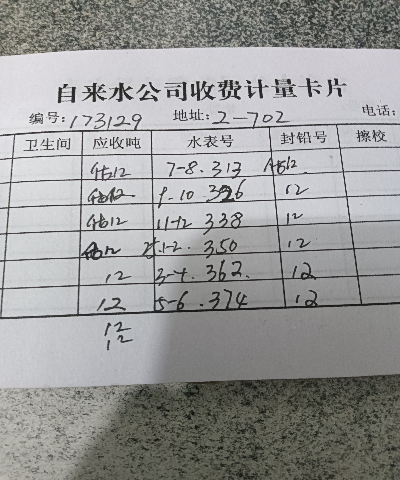 自来水公司收费计量卡片
编号:173129 地址:2-702 电话:
卫生间 应收吨 水表号 封铅号 擦校
12 7-8.313 12
12 9-10.326 12
12 11-12 338 12
12 1-2.350 12
12 3-4.362. 12
12 5-6.374 12
12
12